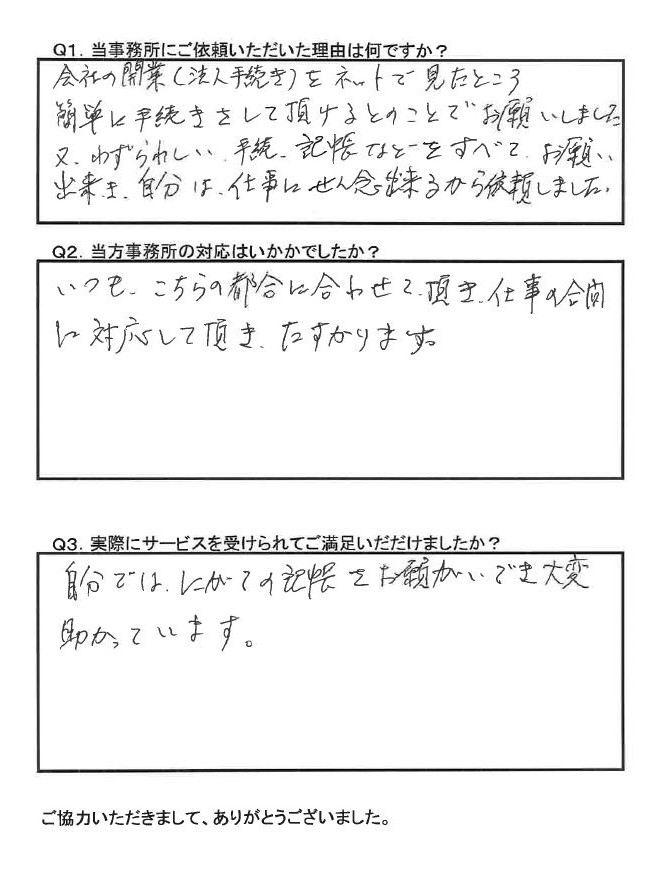 Q1. 当事務所にご依頼いただいた理由は何ですか？
会社の開業(法人手続き)をネットで見たところ
簡単に手続きをして頂けるとのことでお願いしました
又、わずらわしい、手続、記帳などをすべて、お願い
出来、き、自分は、仕事にせん念出来るから依頼しました。
Q2. 当方事務所の対応はいかかでしたか？
いつも、こちらの都合に合わせて、頂き、仕事の合間
に対応して頂き、たすかります。
Q3. 実際にサービスを受けられてご満足いだだけましたか？
自分では、にがての記帳をお願がいでき大変
助かっています。
ご協力いただきまして、ありがとうございました。